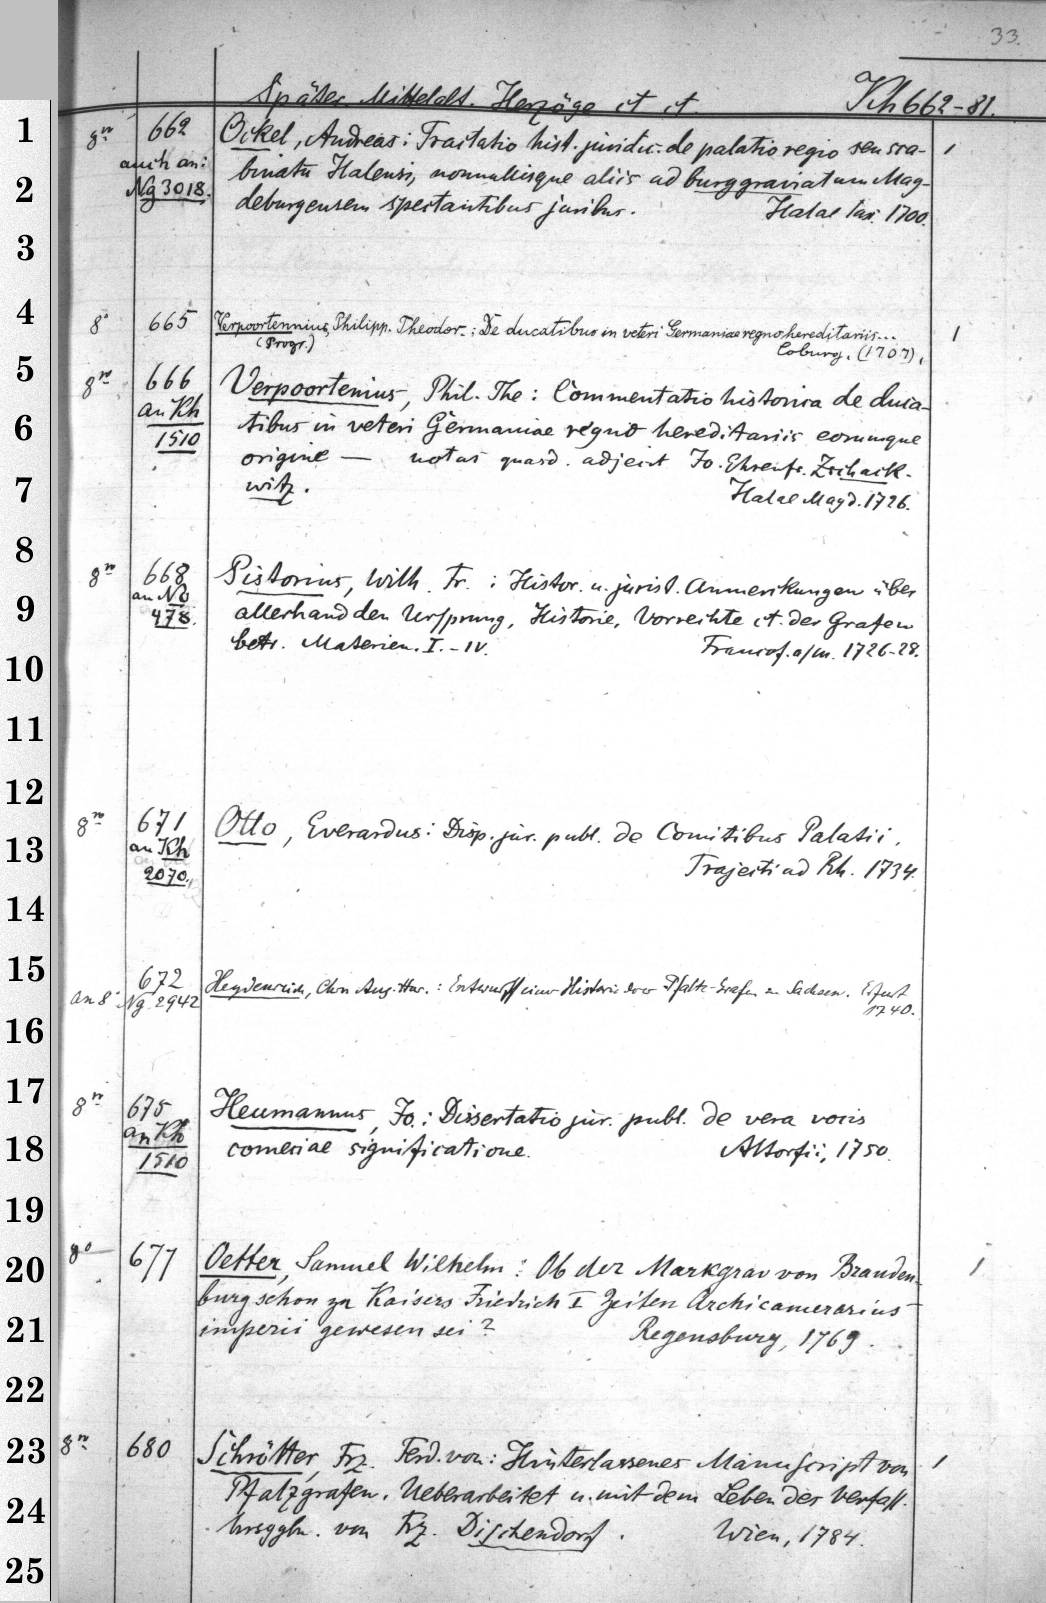 33.
Später Mitteldt. Herzöge et et Kh 662-81.
1
2
3
4
5
6
7
8
9
10
11
12
13
14
15
16
17
18
19
20
21
22
23
24
25
8º 662 Ockel, Andreas: Tractatio hist. juridic. de palatio regio seu sca- 1
auch an: binatu Halensi, nonnullisque aliis ad burggraviatum Mag-
Ng 3018. deburgensem spectantibus juribus. Halae Sax. 1700.
8º 665 Verpoortennius, Philipp. Theodor.: De ducatibus in veteri Germaniae regno hereditariis... 1
(Progr.) Coburg. (1707).
8º 666 Verpoortenius, Phil. The: Commentatio historica de duca-
an Kh tibus in veteri Germaniae regno hereditariis eorumque
1510 origine — notas quasd. adjecit Jo. Ehrenfr. Zschack-
witz. Halae Magd. 1726.
8º 668 Pistorius, Wilh. Fr.: Histor. u. jurist. Anmerkungen über
an allerhand den Ursprung, Historie, Vorrechte et. der Grafen
478. betr. Materien. I.-IV. Francof. a/m. 1726-28.
8º 671 Otto, Everardus: Disp. jur. publ. de Comitibus Palatii.
an Kh
2070. Trajecti ad Rh. 1734.
672 Heydenreich, Chn Aug. : Entwurff einer Historie derer Pfaltz-Grafen zu Sachsen. Erfurt
an 8º Ng 2942 1740.
8º 675 Heumannus, Jo.: Dissertatio jur. publ. de vera vocis
an Kh comeciae significatione. Altorfii, 1750.
1510
8º 677 Oetter, Samuel Wilhelm: Ob der Markgrav von Branden- 1
burg schon zu Kaisers Friedrich I Zeiten Archicamerarius
imperii gewesen sei? Regensburg, 1769.
8º 680 Schrötter, Frz. Ferd. von: Hinterlassenes Manuscript von 1
Pfalzgrafen. Ueberarbeitet u. mit dem Leben des Verfass.
hrsggbn. von Frz. Dischendorf. Wien, 1784.